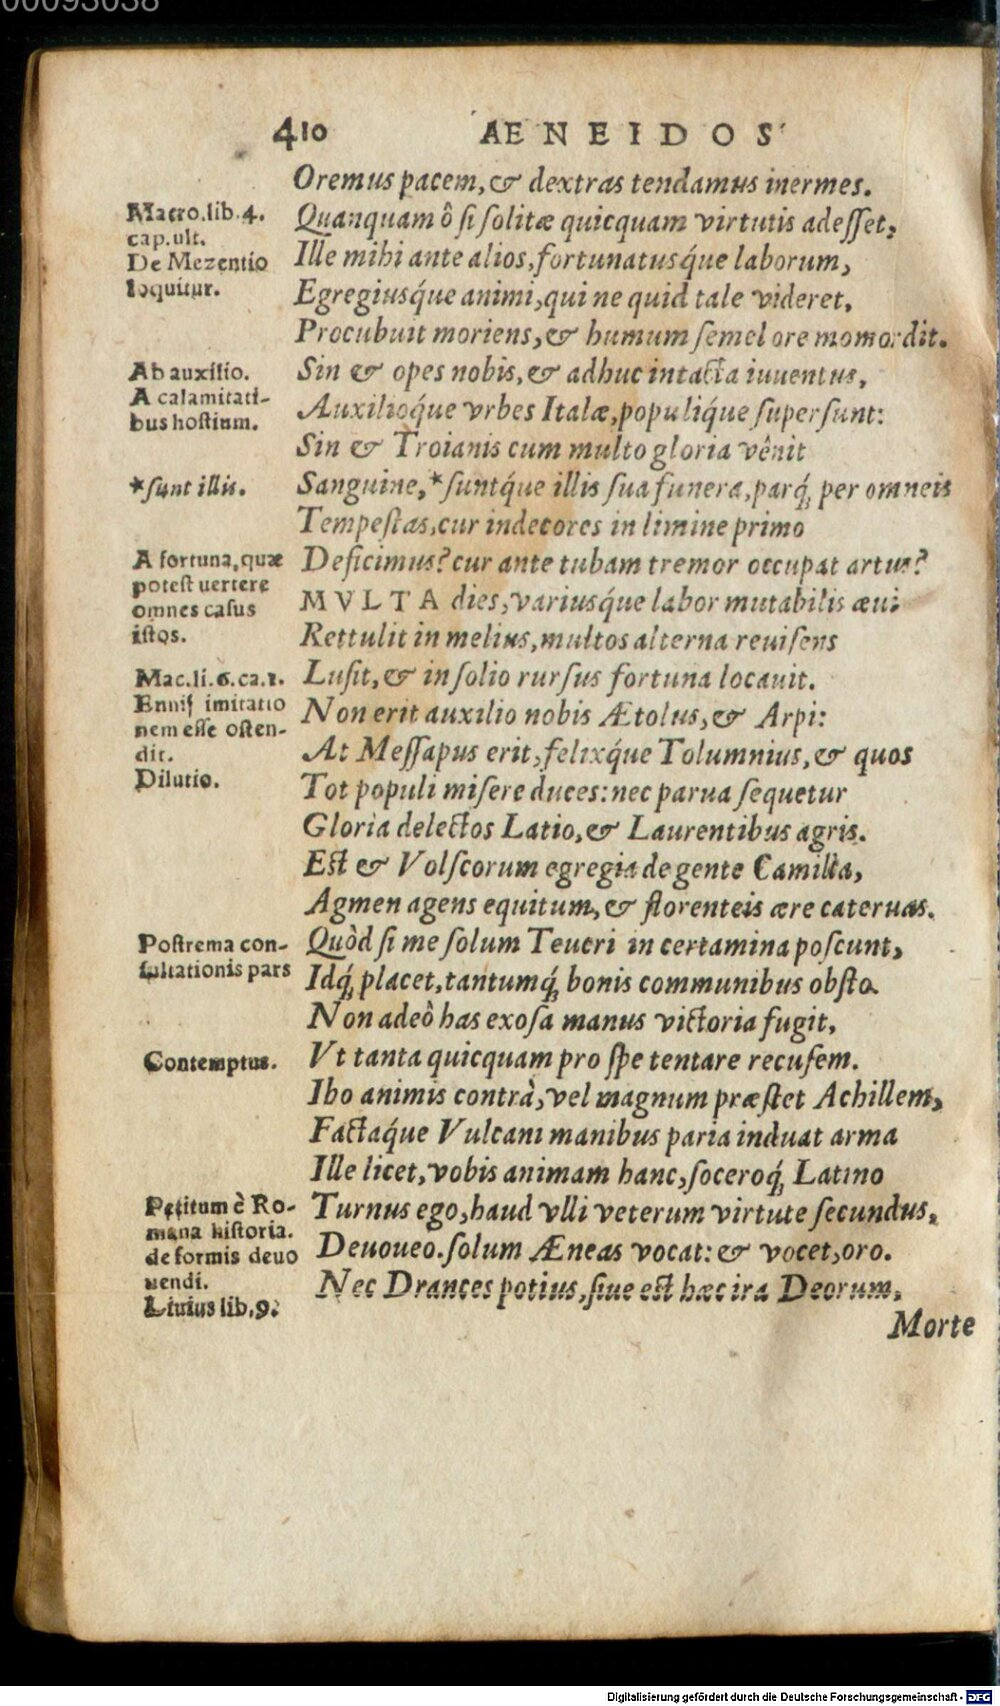 00093038
410 AENEIDOS
Oremus pacem, & dextras tendamus inermes.
Macro.lib.4.
cap.ult.
De Mezentio
loquitur.
Quanquam ô si solitæ quicquam virtutis adesset,
Ille mihi ante alios, fortunatusq́ue laborum,
Egregiusq́ue animi, qui ne quid tale videret,
Procubuit moriens, & humum semel ore momordit.
Ab auxilio.
A calamitati-
bus hostium.
Sin & opes nobis, & adhuc intacta iuuentus,
Auxilioq́ue vrbes Italæ, populiq́ue supersunt:
Sin & Troianis cum multo gloria vênit
*sunt illis.
Sanguine, *suntq́ue illis sua funera, parq́; per omneis
Tempestas, cur indecores in limine primo
A fortuna, quæ
potest uertere
omnes casus
istos.
Deficimus? cur ante tubam tremor occupat artus?
MVLTA dies, variusq́ue labor mutabilis æui
Rettulit in melius, multos alterna reuisens
Mac.li.6.ca.1.
Ennij imitatio
nem esse osten-
dit.
Dilutio.
Lusit, & in solio rursus fortuna locauit.
Non erit auxilio nobis Ætolus, & Arpi:
At Messapus erit, felixq́ue Tolumnius, & quos
Tot populi misere duces: nec parua sequetur
Gloria delectos Latio, & Laurentibus agris.
Est & Volscorum egregia de gente Camilla,
Agmen agens equitum, & florenteis ære cateruas.
Postrema con-
sultationis pars
Quòd si me solum Teucri in certamina poscunt,
Idq́; placet, tantumq́; bonis communibus obsto.
Non adeò has exosa manus victoria fugit,
Contemptus.
Vt tanta quicquam pro spe tentare recusem.
Ibo animis contrà, vel magnum præstet Achillem,
Factaq́ue Vulcani manibus paria induat arma
Ille licet, vobis animam hanc, soceroq́; Latino
Petitum è Ro-
mana historia.
de formis deuo
uendi.
Liuius lib.9.
Turnus ego, haud vlli veterum virtute secundus,
Deuoueo. solum Æneas vocat: & vocet, oro.
Nec Drances potius, siue est hæc ira Deorum,
Morte
Digitalisierung gefördert durch die Deutsche Forschungsgemeinschaft - DFG